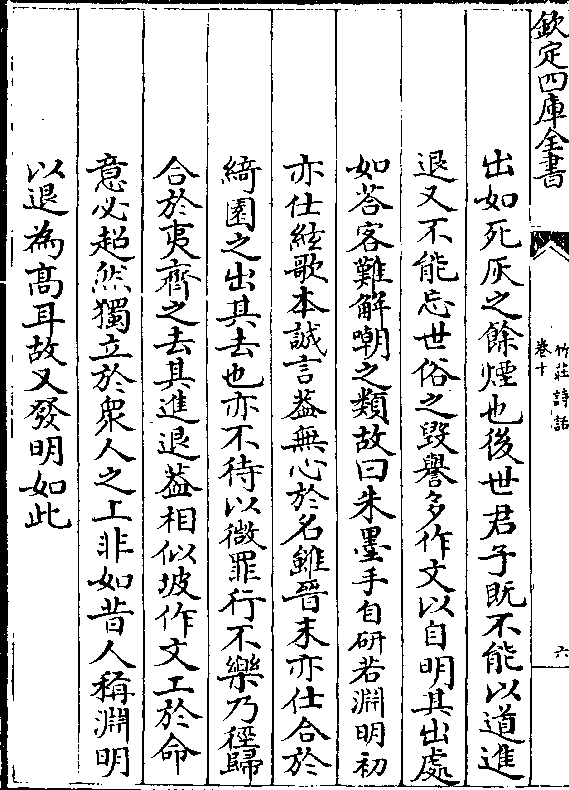 欽定四庫全書
竹莊詩話
卷十
六
出如死灰之餘煙也後世君子既不能以道進
退又不能忘世俗之毀譽多作文以自明其出處
如荅客難解嘲之類故曰朱墨手自研若淵明初
亦仕絃歌本誠言葢無心於名雖晉末亦仕合於
綺園之出其去也亦不待以微罪行不樂乃徑歸
合於夷齊之去其進退葢相似坡作文工於命
意必超然獨立於衆人之上非如昔人稱淵明
以退為高耳故又發明如此